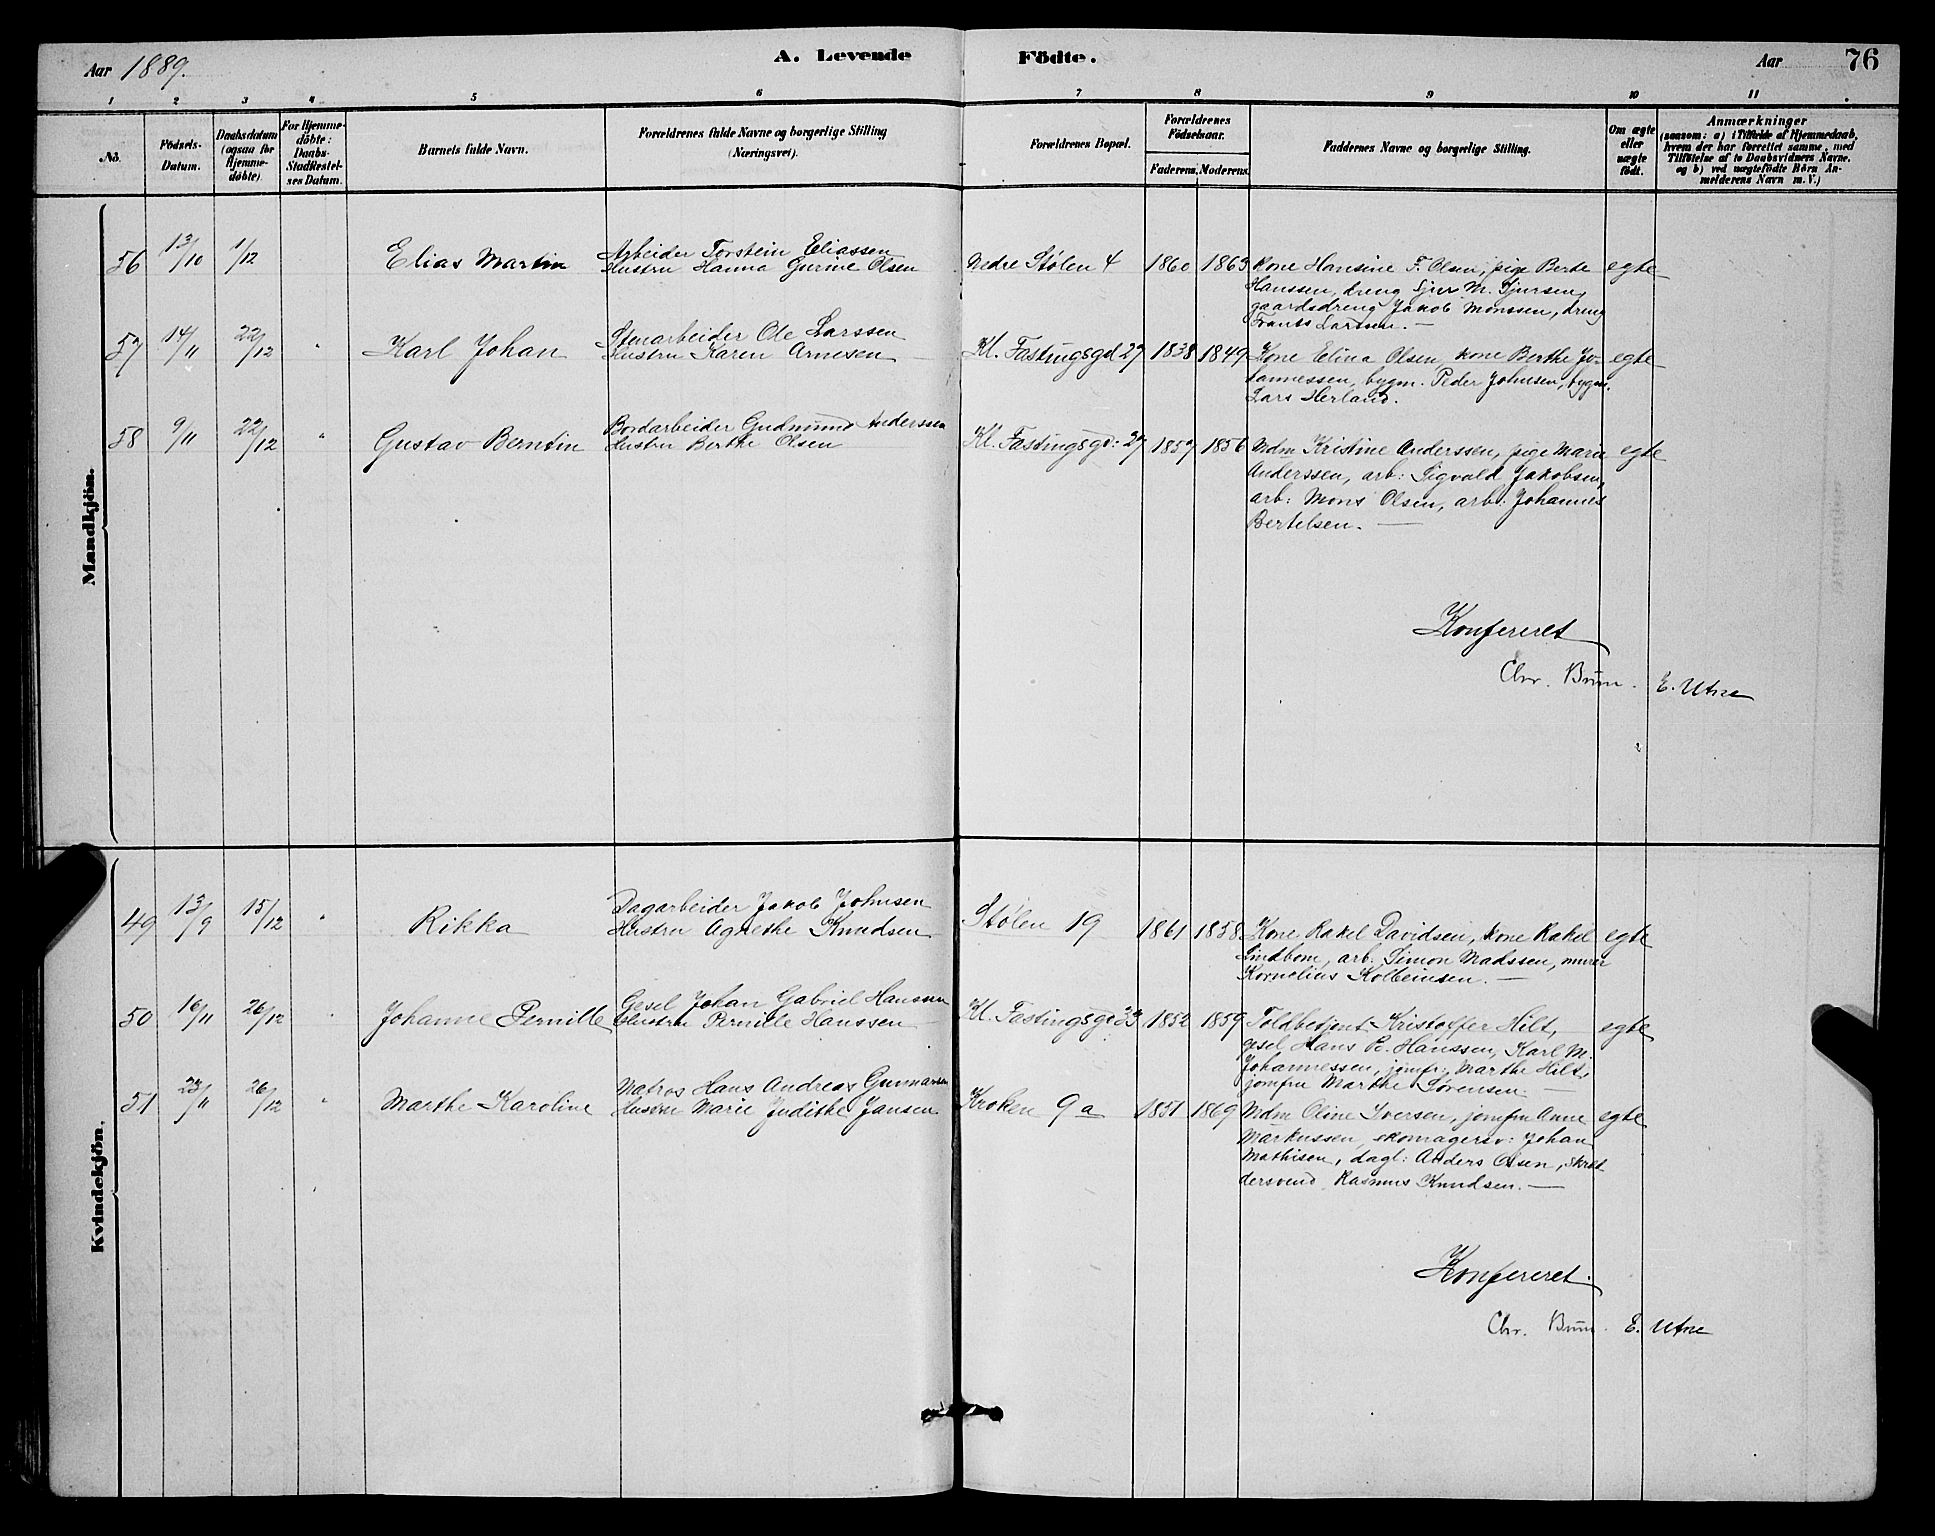 Aar 1889.
A. Levende Födte.
Aar
76
1 2 3 4 5 6 7 8 9 10 11
No.
Födsels-
Datum.
Daabsdatum
(ogsaa for
Hjemme-
döbte).
For Hjemme-
döbte:
Daabs-
Stadfæstel-
ses Datum.
Barnets fulde Navn.
Forældrenes fulde Navne og borgerlige Stilling
(Næringsvei).
Forældrenes Bopæl.
Forældrenes
Födselsaar.
Faderens. Moderens.
Faddernes Navne og borgerlige Stilling.
Om ægte
eller
uægte
födt.
Anmærkninger
(saasom: a) i Tilfælde af Hjemmedaab,
hvem der har forrettet samme, med
Tilföielse af to Daabsvidners Navne,
og b) ved uægtefödte Börn An-
melderens Navn m. V.)
Mandkjön.
56 13/10 1/12 Elias Martin
Arbeider Torstein Eliassen
Hustru Hanna Gurine Olsen
Nedre Stølen 4 1860 1863
Kone Hansine F. Olsen, pige Berte
Hanssen, dreng Sjur M. Sjursen,
gaardsdreng Jakob Monssen, dreng
Frants Larssen.—
egte
57 14/11 22/12 " Karl Johan
Stenarbeider Ole Larssen
Hustru Karen Arnesen
Kl. Fastingsgd 27 1838 1849
Kone Elina Olsen, kone Berthe Jo-
hannessen, bygm. Peder Johnsen, bygm.
Lars Herland.
egte
58 9/11 22/12 " Gustav Berntin
Bordarbeider Gudmund Anderssen
Hustru Berthe Olsen
Kl. Fastingsgd: 27 1857 1856
Mdm Kristine Anderssen, pige Marie
Anderssen, arb: Sigvald Jakobsen,
arb: Mons Olsen, arb: Johannes
Bertelsen.—
egte
Konfereret
Chr. Bruun. E. Utne
Kvindekjön.
49 13/9 15/12 " Rikka
Dagarbeider Jakob Johnsen
Hustru Agnethe Knudsen
Stølen 19 1861 1858
Kone Rakel Davidsen, kone Rakel
Lindbom, arb. Simon Madssen, murer
Kornelius Kolbeinsen.—
egte
50 16/11 26/12 " Johanne Pernille
Gesel Johan Gabriel Hanssen
Hustru Pernille Hanssen
Kl. Fastingsgd 33 1852 1859
Toldbetjent Kristoffer Hilt,
gesel Hans P. Hanssen, Karl M.
Johannessen, jomfr: Marthe Hilt,
jomfru Marthe Sørensen.—
egte
51 23/11 26/12 " Marthe Karoline
Matros Hans Andreas Gunnarsen
Hustru Marie Judithe Jansen
Kroken 9a 1851 1869
Mdm Oline Iversen, jomfru Anne
Markussen, skomagersv: Johan
Mathisen, dagl: Anders Olsen, skræd-
dersvend Rasmus Knudsen.—
egte
Konfereret
Chr. Bruun. E. Utne